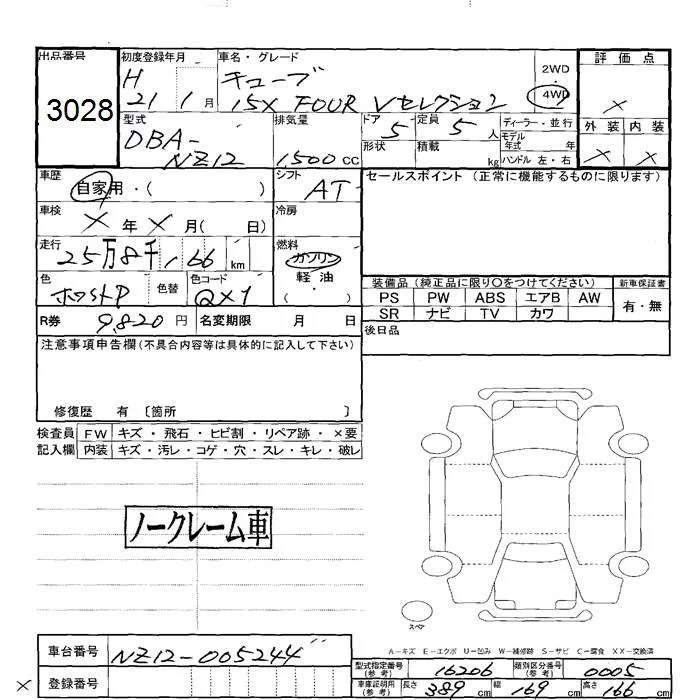 出品番号
3028
初度登録年月
H
21 1月
車名・グレード
キューブ
15X FOUR Vセレクション
2WD
4WD
評価点
×
外装 内装
× ×
型式
DBA-
NZ12
排気量
1,500cc
ドア 5
形状
定員 5人
積載 kg
ディーラー・並行
モデル年式 年
ハンドル 左・右
車歴
自家用・( )
シフト
AT
セールスポイント (正常に機能するものに限ります)
車検
×年×月( 日)
冷房
走行
25万8千166km
燃料
ガソリン
軽油
( )
色
ホワイトP
色替
色コード
QX1
装備品 (純正品に限り○をつけてください)
新車保証書
PS PW ABS エアB AW
SR ナビ TV カワ
有・無
R券 9,820円
名変期限 月 日
後日品
注意事項申告欄(不具合内容等は具体的に記入して下さい)
修復歴 有 〔箇所 〕
検査員 FW キズ・飛石・ヒビ割・リペア跡・×要
記入欄 内装 キズ・汚レ・コゲ・穴・スレ・キレ・破レ
ノークレーム車
スペア
A-キズ E-エクボ U-凹み W-補修跡 S-サビ C-腐食 XX-交換済
車台番号 NZ12-005244
×
登録番号
型式指定番号(参考) 16206
類別区分番号(参考) 0005
車庫証明用(参考) 長さ 389cm 幅 169cm 高さ 166cm